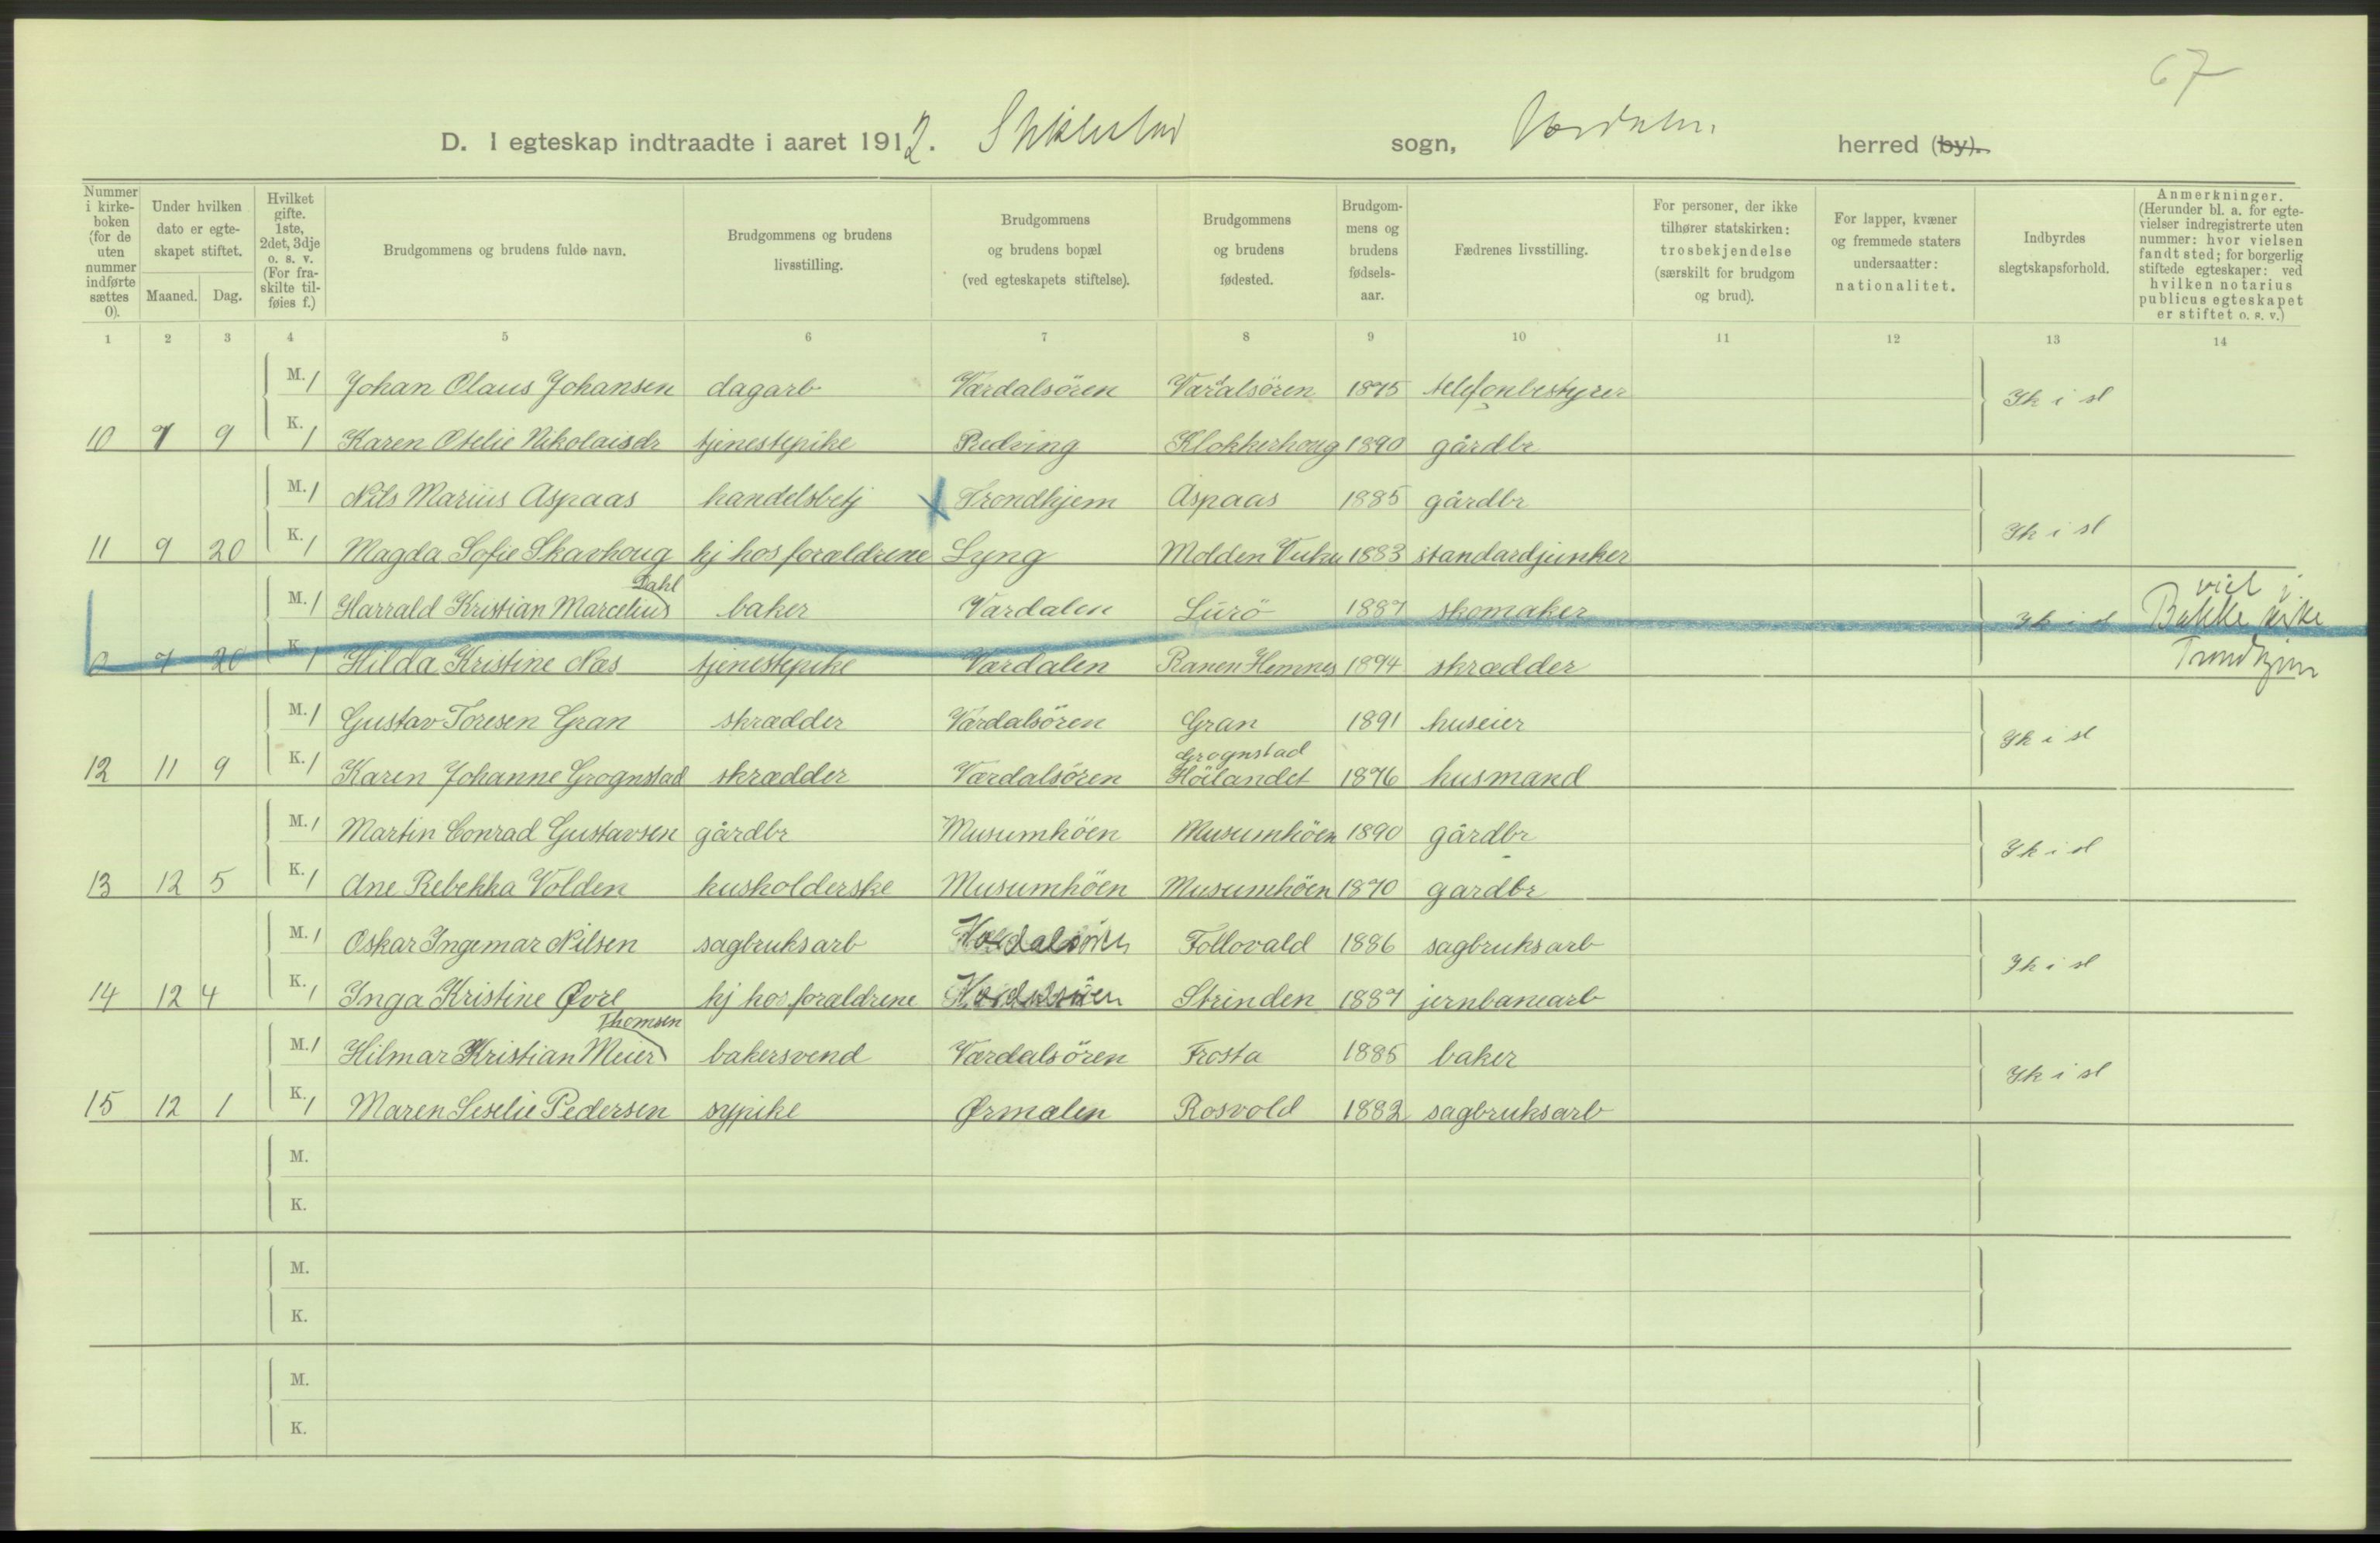 67
D. I egteskap indtraadte i aaret 1912. Stiklestad sogn, Værdalen herred (by).
Nummer i kirke-boken (for de uten nummer indførte sættes 0).
Under hvilken dato er egte-skapet stiftet.
Maaned. Dag.
Hvilket gifte. 1ste, 2det, 3dje o. s. v. (For fra-skilte til-føies f.)
Brudgommens og brudens fulde navn.
Brudgommens og brudens livsstilling.
Brudgommens og brudens bopæl (ved egteskapets stiftelse).
Brudgommens og brudens fødested.
Brudgom-mens og brudens fødsels-aar.
Fædrenes livsstilling.
For personer, der ikke tilhører statskirken: trosbekjendelse (særskilt for brudgom og brud).
For lapper, kvæner og fremmede staters undersaatter: nationalitet.
Indbyrdes slegtskapsforhold.
Anmerkninger. (Herunder bl. a. for egte-vielser indregistrerte uten nummer: hvor vielsen fandt sted; for borgerlig stiftede egteskaper: ved hvilken notarius publicus egteskapet er stiftet o. s. v.)
1 2 3 4 5 6 7 8 9 10 11 12 13 14
M. 1 Johan Olaus Johansen dagarb Værdalsören Værdalsören 1875 telefonbestyrer Ik i sl
10 7 9 K. 1 Karen Otelie Nikolaisdr tjenestepike Redving Klokkerhaug 1890 gårdbr
M. 1 Nils Marius Aspaas handelsbetj Trondhjem Aspaas 1885 gårdbr Ik i sl
11 9 20 K. 1 Magda Sofie Skavhaug hj hos forældrene Lyng Molden Vuku 1883 standardjunker
Dahl
M. 1 Harrald Kristian Marcelius baker Værdalen Lurö 1887 skomaker Ik i sl viet i Bakke kirke
0 7 20 K. 1 Hilda Kristine Næs tjenestepike Værdalen Ranen Hemnes 1894 skrædder Trondhjem
M. 1 Gustav Toresen Gran skrædder Værdalsören Gran 1891 huseier Ik i sl
12 11 9 K. 1 Karen Johanne Grognstad skrædder Værdalsören Grognstad Höilandet 1876 husmand
M. 1 Martin Conrad Gustavsen gårdbr Musumhöen Musumhöen 1890 gårdbr Ik i sl
13 12 5 K. 1 Ane Rebekka Volden husholderske Musumhöen Musumhöen 1870 gårdbr
M. 1 Oskar Ingemar Nilsen sagbruksarb Værdalsören Follovald 1886 sagbruksarb Ik i sl
14 12 4 K. 1 Inga Kristine Øvre hj hos forældrene Værdalsören Strinden 1887 jernbanearb
Thomsen
M. 1 Hilmar Kristian Meier bakersvend Værdalsören Frosta 1885 baker Ik i sl
15 12 1 K. 1 Maren Seselie Pedersen sypike Ørmælen Rosvold 1882 sagbruksarb
M.
K.
M.
K.
M.
K.